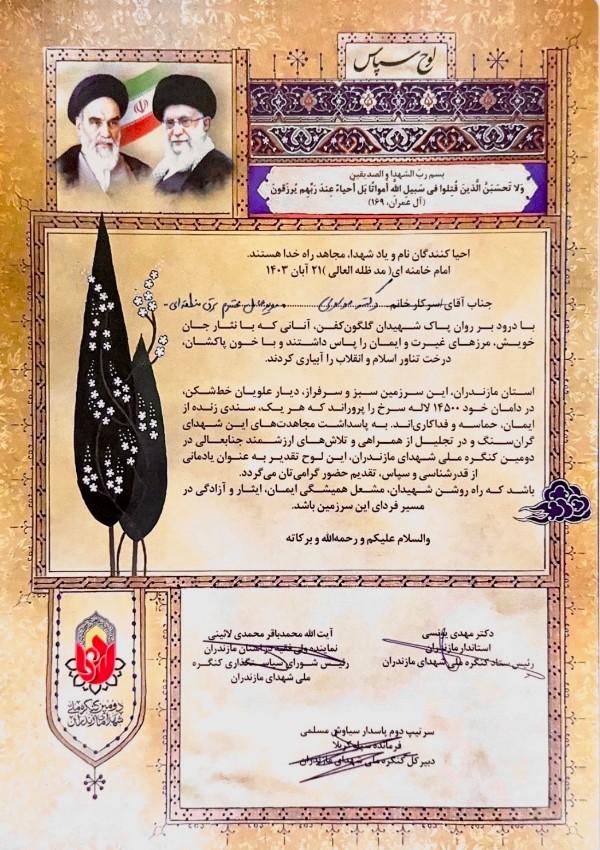 لوح سپاس
بسم ربّ الشهدا و الصدیقین
وَلا تَحسَبَنَّ الَّذینَ قُتِلوا فی سَبیلِ اللَّهِ أَمواتًا بَل أَحیاءٌ عِندَ رَبِّهِم یُرزَقونَ
(آل عمران، ۱۶۹)
احیا کنندگان نام و یاد شهدا، مجاهد راه خدا هستند.
امام خامنه ای( مد ظله العالی )۲۱ آبان ۱۴۰۳
جناب آقای/سرکار خانم
با درود بر روان پاک شهیدان گلگون‌کفن، آنانی که با نثار جان
خویش، مرزهای غیرت و ایمان را پاس داشتند و با خون پاکشان،
درخت تناور اسلام و انقلاب را آبیاری کردند.
استان مازندران، این سرزمین سبز و سرفراز، دیار علویان خط‌شکن،
در دامان خود ۱۴۵۰۰ لاله سرخ را پروراند که هر یک، سندی زنده از
ایمان، حماسه و فداکاری‌اند. به پاسداشت مجاهدت‌های این شهدای
گران‌سنگ و در تجلیل از همراهی و تلاش‌های ارزشمند جنابعالی در
دومین کنگره ملی شهدای مازندران، این لوح تقدیر به عنوان یادمانی
از قدرشناسی و سپاس، تقدیم حضور گرامی‌تان می‌گردد.
باشد که راه روشن شهیدان، مشعل همیشگی ایمان، ایثار و آزادگی در
مسیر فردای این سرزمین باشد.
والسلام علیکم و رحمه‌الله و برکاته
دکتر مهدی یونسی
استاندار مازندران
رئیس ستاد کنگره ملی شهدای مازندران
آیت الله محمدباقر محمدی لائینی
نماینده ولی فقیه در استان مازندران
رئیس شورای سیاستگذاری کنگره
ملی شهدای مازندران
سرتیپ دوم پاسدار سیاوش مسلمی
فرمانده سپاه کربلا
دبیر کل کنگره ملی شهدای مازندران
دومین کنگره ملی
شهدای مازندران